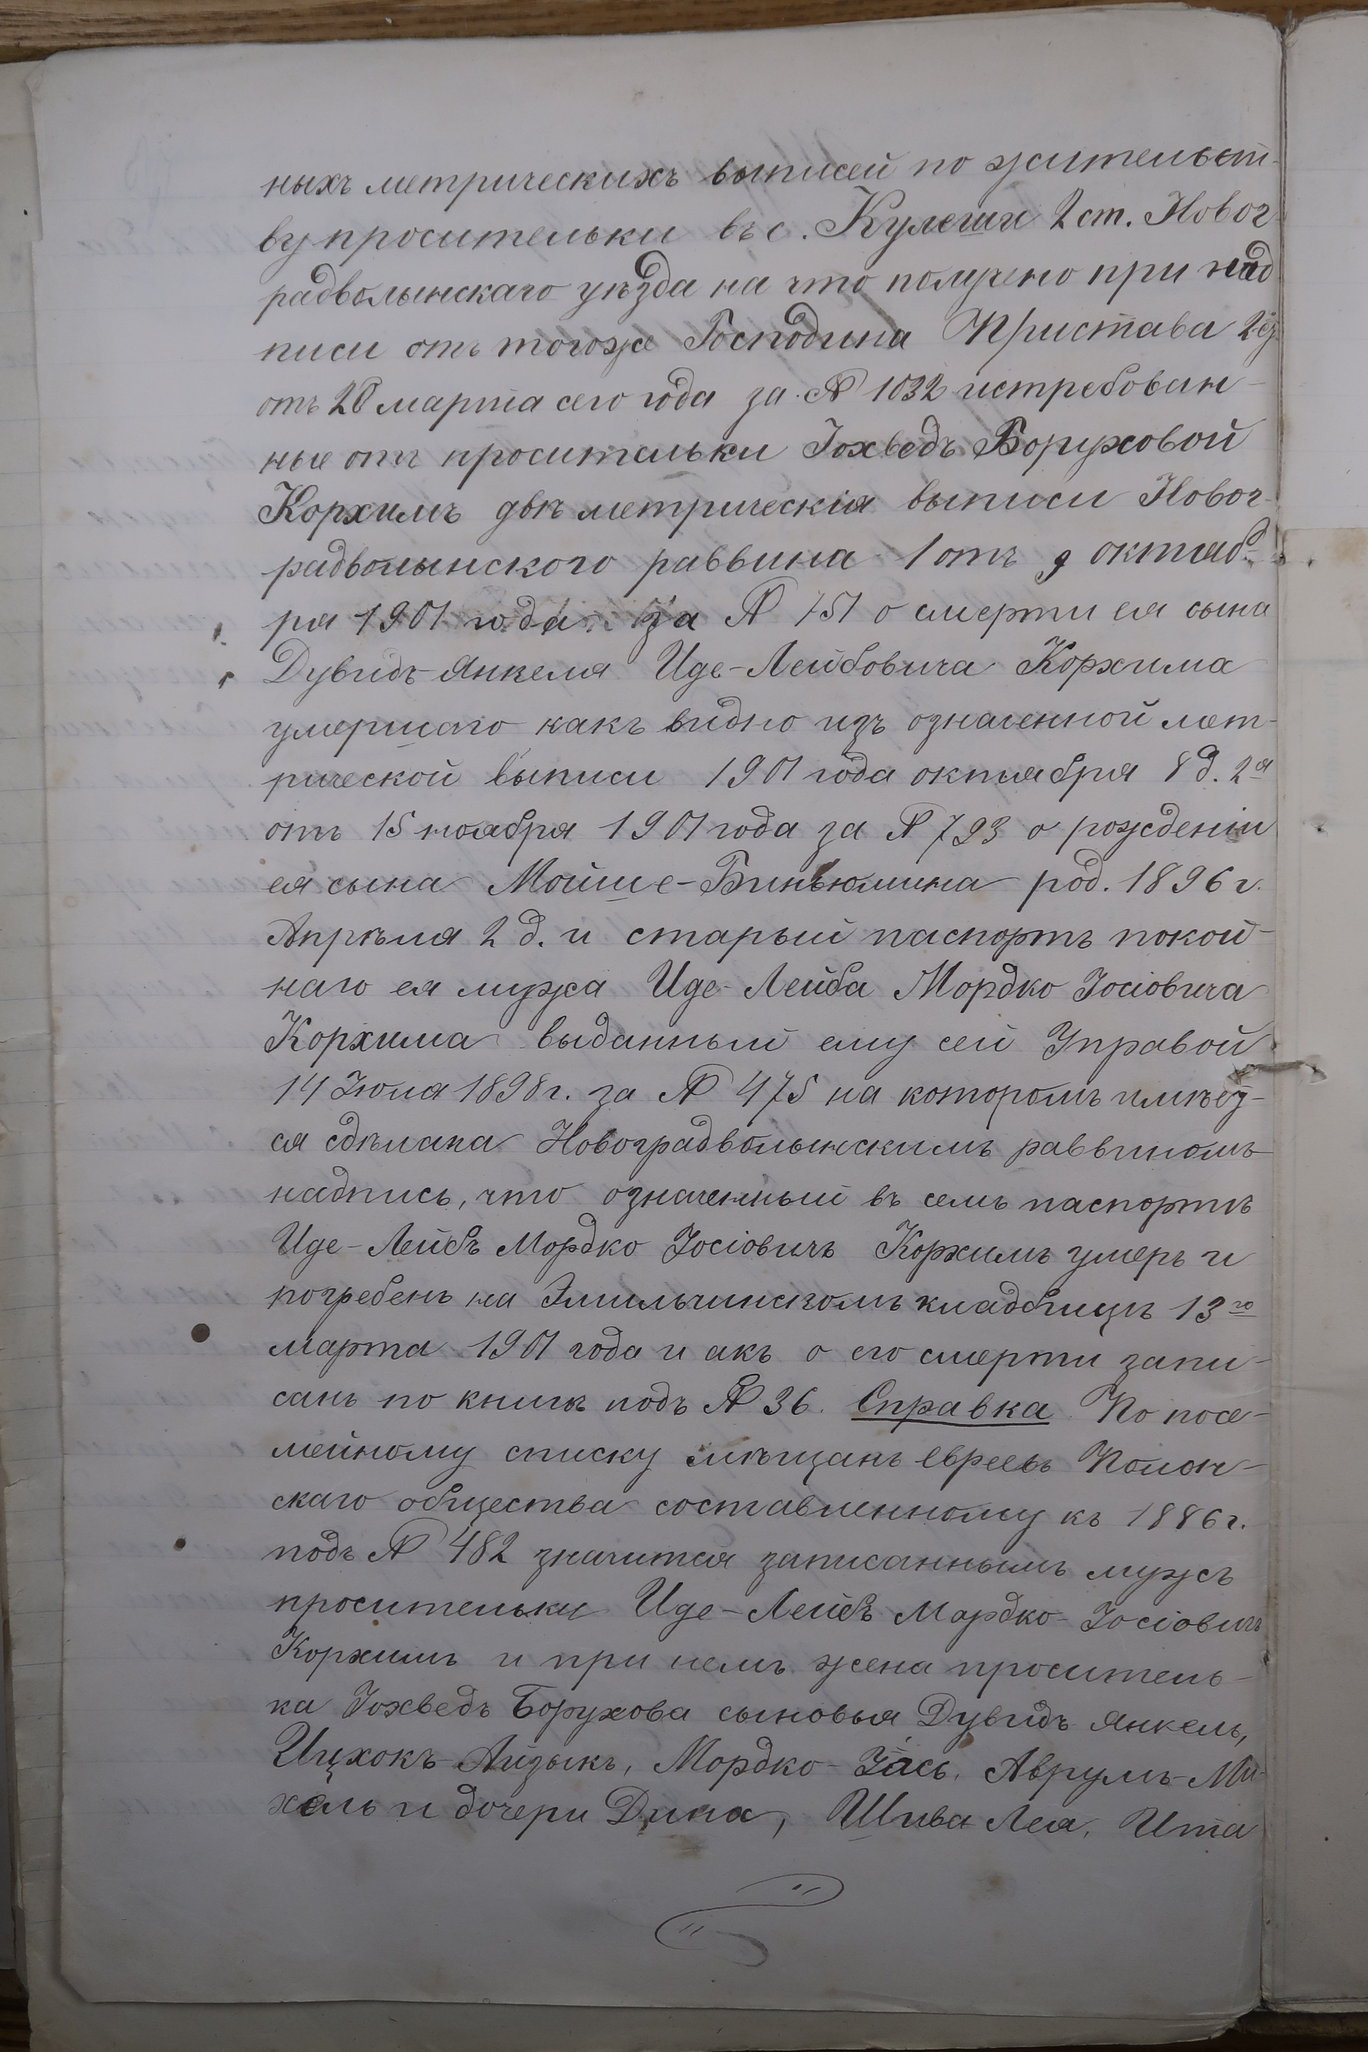 ныхъ метрическихъ выписей по жительст-
ву просительки въ с. Кулеши 2 ст. Новог
радволынскаго уѣзда на что получено при над
писи отъ тогоже Господина Пристава 2 у.
отъ 20 марта сего года за № 1032 истребован-
ные отъ просительки Іохведъ Боруховой
Корхимъ двѣ метрическія выписи Новог-
радволынского раввина 1 отъ 9 октяб-
ря 1901 года за № 751 о смерти ея сына
Дувидъ Янкеля Иде-Лейбовича Корхима
умершаго какъ видно изъ означенной мет-
рической выписи 1901 года октября 8 д. 2я
отъ 15 ноября 1901 года за № 793 о рожденіи
ея сына Мойше-Биньюмина род. 1896 г.
Апрѣля 2 д. и старый паспортъ покой-
наго ея мужа Иде-Лейба Мордко Іосіовича
Корхима выданный ему сей Управой
14 Іюля 1898 г. за № 475 на которомъ имѣет-
ся сдѣлана Новоградволынскимъ раввиномъ
надпись, что означенный въ семъ паспортѣ
Иде-Лейбъ Мордко Іосіовичъ Корхимъ умеръ и
погребенъ на Эмильчинскомъ кладбищѣ 13го
марта 1901 года и акъ о его смерти запи-
санъ по книгѣ подъ № 36. Справка По посе-
мейному списку мѣщанъ евреевъ Полон-
скаго общества составленному къ 1886 г.
подъ № 482 значится записаннымъ мужъ
просительки Иде-Лейбъ Мордко-Іосіовичъ
Корхимъ и при немъ жена проситель-
ка Іохведъ Борухова сыновья Дувидъ Янкель,
Ицхокъ-Айзыкъ, Мордко-Іось, Аврумъ-Ми-
хель и дочери Дина, Шива Лея, Ита